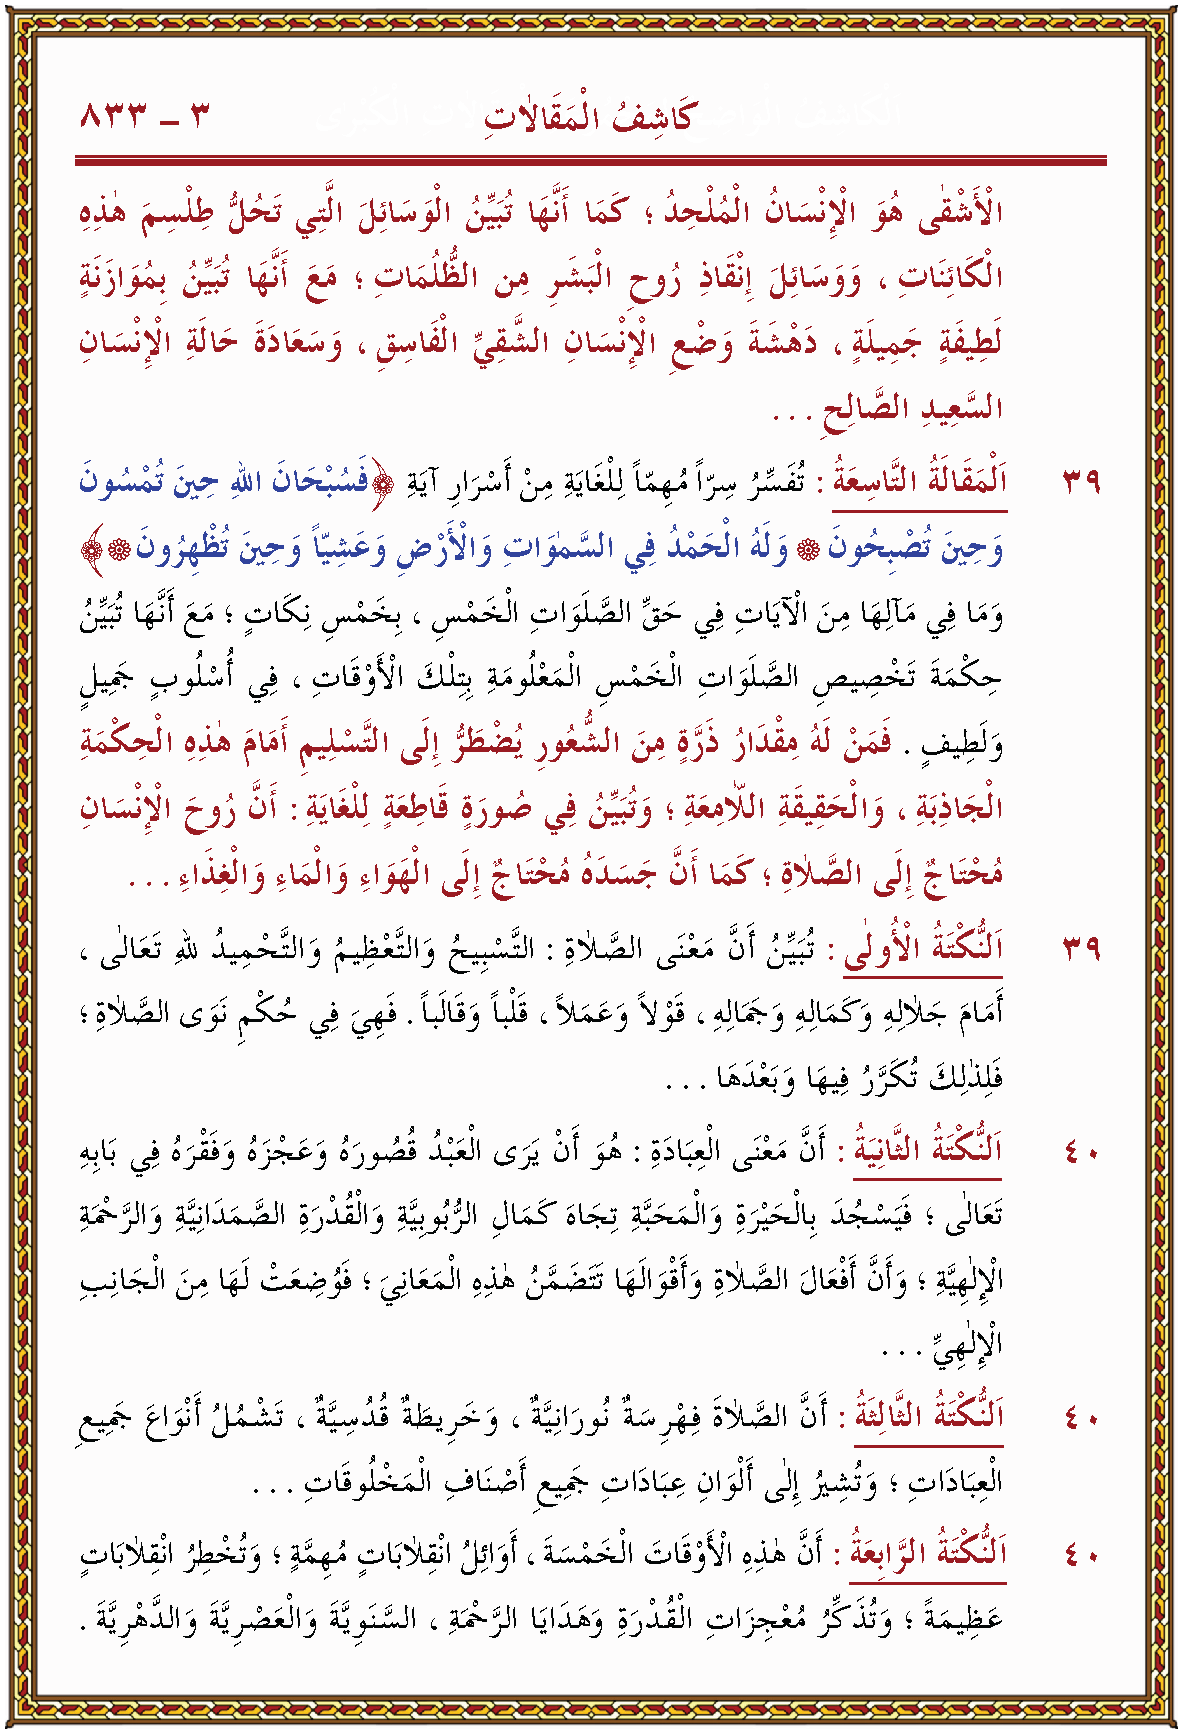 كَاشِفُ الْمَقَالَاتِ ٣ ـ ٨٣٣
الْأَشْقٰى هُوَ الْإِنْسَانُ الْمُلْحِدُ ؛ كَمَا أَنَّهَا تُبَيِّنُ الْوَسَائِلَ الَّتِي تَحُلُّ طِلْسِمَ هٰذِهِ
الْكَائِنَاتِ ، وَوَسَائِلَ إِنْقَاذِ رُوحِ الْبَشَرِ مِنَ الظُّلُمَاتِ ؛ مَعَ أَنَّهَا تُبَيِّنُ بِمُوَازَنَةٍ
لَطِيفَةٍ جَمِيلَةٍ ، دَهْشَةَ وَضْعِ الْإِنْسَانِ الشَّقِيِّ الْفَاسِقِ ، وَسَعَادَةَ حَالَةِ الْإِنْسَانِ
السَّعِيدِ الصَّالِحِ . . .
٣٩ اَلْمَقَالَةُ التَّاسِعَةُ : تُفَسِّرُ سِرّاً مُهِمّاً لِلْغَايَةِ مِنْ أَسْرَارِ آيَةِ ﴿فَسُبْحَانَ اللهِ حِينَ تُمْسُونَ
وَحِينَ تُصْبِحُونَ ۞ وَلَهُ الْحَمْدُ فِي السَّمٰوَاتِ وَالْأَرْضِ وَعَشِيّاً وَحِينَ تُظْهِرُونَ ۞﴾
وَمَا فِي مَآلِهَا مِنَ الْآيَاتِ فِي حَقِّ الصَّلَوَاتِ الْخَمْسِ ، بِخَمْسِ نِكَاتٍ ؛ مَعَ أَنَّهَا تُبَيِّنُ
حِكْمَةَ تَخْصِيصِ الصَّلَوَاتِ الْخَمْسِ الْمَعْلُومَةِ بِتِلْكَ الْأَوْقَاتِ ، فِي أُسْلُوبٍ جَمِيلٍ
وَلَطِيفٍ . فَمَنْ لَهُ مِقْدَارُ ذَرَّةٍ مِنَ الشُّعُورِ يُضْطَرُّ إِلَى التَّسْلِيمِ أَمَامَ هٰذِهِ الْحِكْمَةِ
الْجَاذِبَةِ ، وَالْحَقِيقَةِ اللَّامِعَةِ ؛ وَتُبَيِّنُ فِي صُورَةٍ قَاطِعَةٍ لِلْغَايَةِ : أَنَّ رُوحَ الْإِنْسَانِ
مُحْتَاجٌ إِلَى الصَّلَاةِ ؛ كَمَا أَنَّ جَسَدَهُ مُحْتَاجٌ إِلَى الْهَوَاءِ وَالْمَاءِ وَالْغِذَاءِ . . .
٣٩ اَلنُّكْتَةُ الْأُولٰى : تُبَيِّنُ أَنَّ مَعْنَى الصَّلَاةِ : التَّسْبِيحُ وَالتَّعْظِيمُ وَالتَّحْمِيدُ لِلهِ تَعَالٰى ،
أَمَامَ جَلَالِهِ وَكَمَالِهِ وَجَمَالِهِ ، قَوْلاً وَعَمَلاً ، قَلْباً وَقَالَباً . فَهِيَ فِي حُكْمِ نَوَى الصَّلَاةِ ؛
فَلِذٰلِكَ تُكَرَّرُ فِيهَا وَبَعْدَهَا . . .
٤٠ اَلنُّكْتَةُ الثَّانِيَةُ : أَنَّ مَعْنَى الْعِبَادَةِ : هُوَ أَنْ يَرَى الْعَبْدُ قُصُورَهُ وَعَجْزَهُ وَفَقْرَهُ فِي بَابِهِ
تَعَالٰى ؛ فَيَسْجُدَ بِالْحَيْرَةِ وَالْمَحَبَّةِ تِجَاهَ كَمَالِ الرُّبُوبِيَّةِ وَالْقُدْرَةِ الصَّمَدَانِيَّةِ وَالرَّحْمَةِ
الْإِلٰهِيَّةِ ؛ وَأَنَّ أَفْعَالَ الصَّلَاةِ وَأَقْوَالَهَا تَتَضَمَّنُ هٰذِهِ الْمَعَانِيَ ؛ فَوُضِعَتْ لَهَا مِنَ الْجَانِبِ
الْإِلٰهِيِّ . . .
٤٠ اَلنُّكْتَةُ الثَّالِثَةُ : أَنَّ الصَّلَاةَ فِهْرِسَةٌ نُورَانِيَّةٌ ، وَخَرِيطَةٌ قُدْسِيَّةٌ ، تَشْمُلُ أَنْوَاعَ جَمِيعِ
الْعِبَادَاتِ ؛ وَتُشِيرُ إِلٰى أَلْوَانِ عِبَادَاتِ جَمِيعِ أَصْنَافِ الْمَخْلُوقَاتِ . . .
٤٠ اَلنُّكْتَةُ الرَّابِعَةُ : أَنَّ هٰذِهِ الْأَوْقَاتَ الْخَمْسَةَ ، أَوَائِلُ انْقِلَابَاتٍ مُهِمَّةٍ ؛ وَتُخْطِرُ انْقِلَابَاتٍ
عَظِيمَةً ؛ وَتُذَكِّرُ مُعْجِزَاتِ الْقُدْرَةِ وَهَدَايَا الرَّحْمَةِ ، السَّنَوِيَّةَ وَالْعَصْرِيَّةَ وَالدَّهْرِيَّةَ .